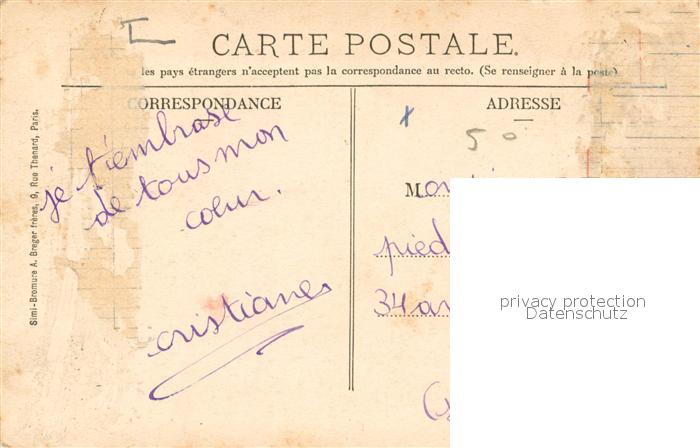 CARTE POSTALE.
les pays étrangers n'acceptent pas la correspondance au recto. (Se renseigner à la poste)
CORRESPONDANCE
je t'embrase
de tous mon
coeur.
cristiane
Simi-Bromure A. Breger frères, 9, Rue Thenard, Paris.
ADRESSE
50
M
pied
34 av
privacy protection
Datenschutz